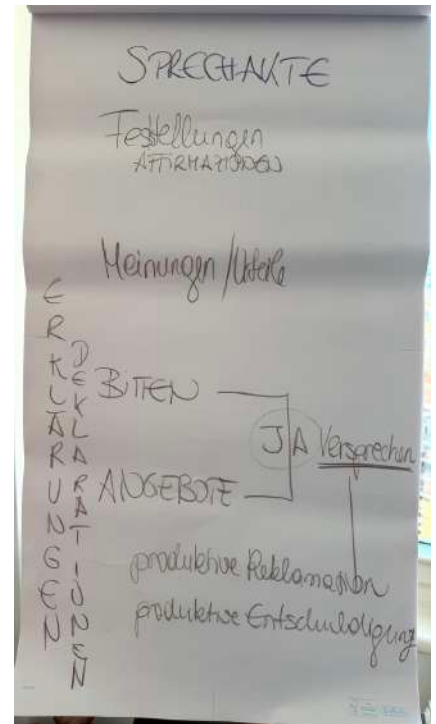 SPRECHAKTE
Feststellungen
AFFIRMATIONEN
Meinungen/Urteile
ERKLÄRUNGEN
DEKLARATIONEN
BITTEN
JA Versprechen
ANGEBOTE
produktive Reklamation
produktive Entschuldigung